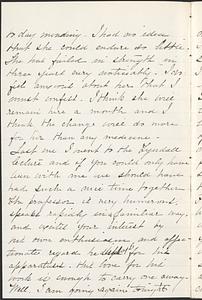 to day mending. I had no idea
that she could endure so little.
She has failed in strength in
three years very noticeably. I do
feel anxious about her that I
must confess. I think she will
remain here a month and I
think the change will do more
for her than any medicine.
Last eve I went to the Tyndall
lecture and if you could only have
been with me we should have
had such a nice time together.
The professor is very humorous,
speaks rapidly in a familiar way,
and excites your interest by
his own enthusiasm and affec-
tionate regard he for his
apparatus. The love for his
work is enough to carry one away
Well I am going again tonight